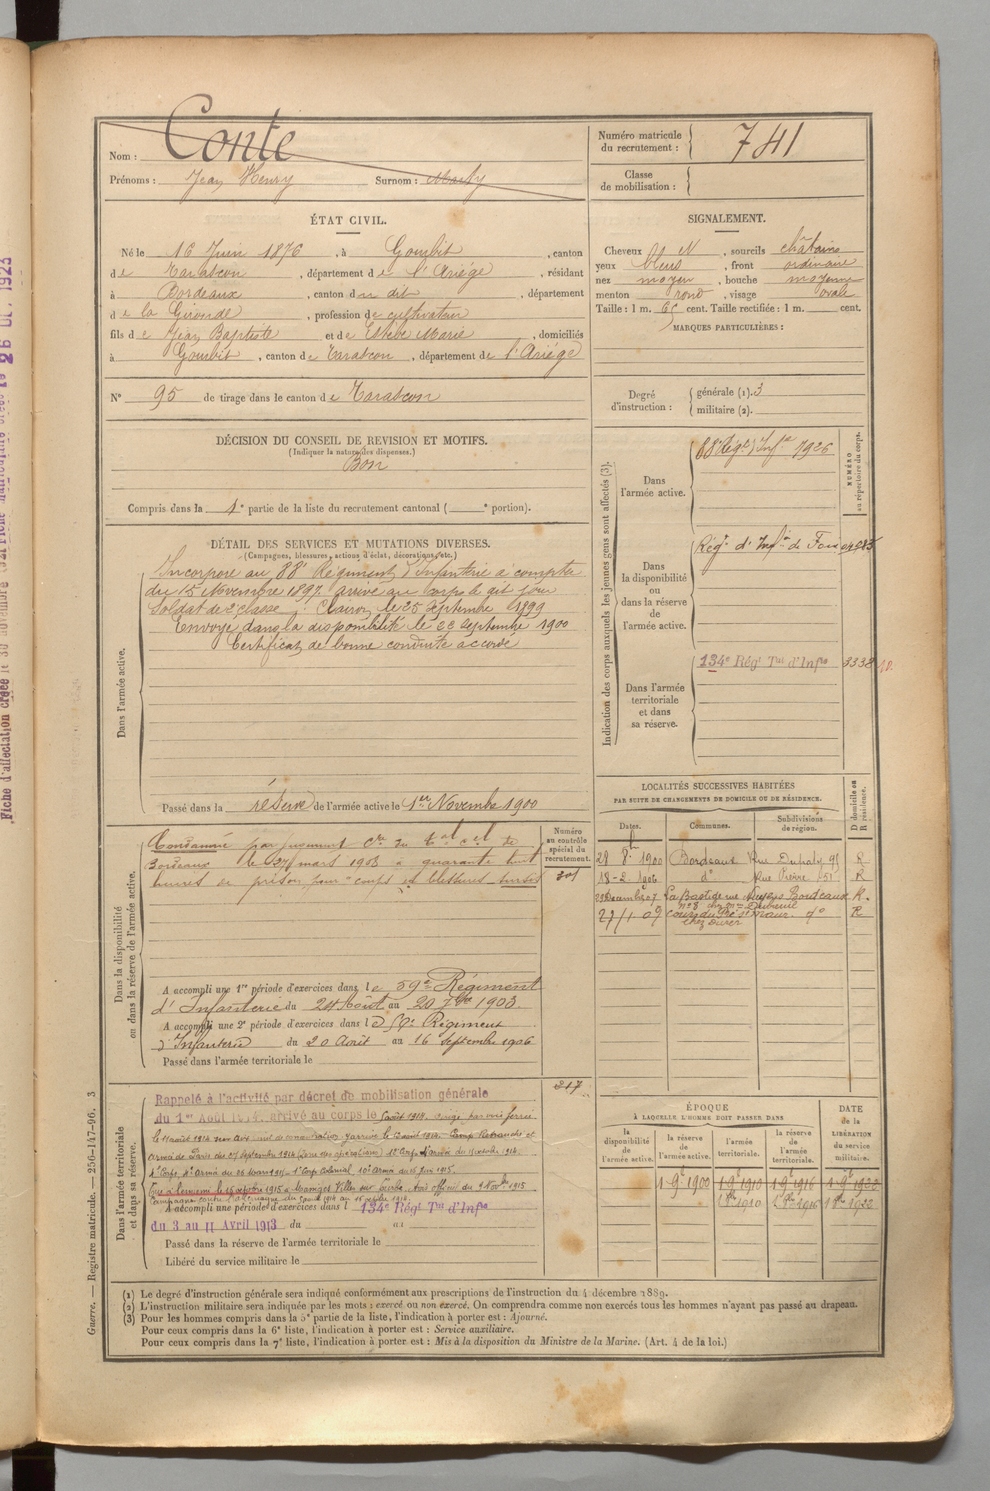 Conte
Nom :
Numéro matricule du recrutement : 741
Prénoms : Jean Henry Surnom :
Classe de mobilisation :
ÉTAT CIVIL.
Né le 16 Juin 1876, à Gourbit, canton
de Tarascon, département de l'Ariége, résidant
à Bordeaux, canton du dit, département
de la Gironde, profession de cultivateur
fils de Jean Baptiste et de Estève Marie, domiciliés
à Gourbit, canton de Tarascon, département de l'Ariége
N° 95 de tirage dans le canton de Tarascon
SIGNALEMENT.
Cheveux ch n, sourcils châtains
yeux bleus, front ordinaire
nez moyen, bouche moyenne
menton rond, visage ovale
Taille : 1 m. 65 cent. Taille rectifiée : 1 m. cent.
MARQUES PARTICULIÈRES :
Degré d'instruction :
générale (1). 3
militaire (2).
DÉCISION DU CONSEIL DE REVISION ET MOTIFS.
(Indiquer la nature des dispenses.)
Bon
Compris dans la 1e partie de la liste du recrutement cantonal ( e portion).
DÉTAIL DES SERVICES ET MUTATIONS DIVERSES.
(Campagnes, blessures, actions d'éclat, décorations, etc.)
Dans l'armée active.
Incorporé au 88e Régiment d'Infanterie à compter
du 15 Novembre 1897. arrivé au corps le dit jour
Soldat de 2e classe. Clairon le 25 Septembre 1899
Envoyé dans la disponibilité le 22 Septembre 1900
Certificat de bonne conduite accordé
Passé dans la réserve de l'armée active le 1er Novembre 1900
Indication des corps auxquels les jeunes gens sont affectés (3).
NUMÉRO au répertoire du corps.
Dans l'armée active.
88e Régt d'Infie 7926
Dans la disponibilité ou dans la réserve de l'armée active.
Régt d'Infie de Foix
Dans l'armée territoriale et dans sa réserve.
134e Régt Tal d'Infie 3338
LOCALITÉS SUCCESSIVES HABITÉES
PAR SUITE DE CHANGEMENTS DE DOMICILE OU DE RÉSIDENCE.
Dates. Communes. Subdivisions de région. D domicile ou R résidence.
28 8 1900 Bordeaux Rue Dupaty 95 R
18-2 1906 do Rue Pierre 51 R
La Bastide rue Bordeaux R.
27/1 09 cours do R
Dans la disponibilité ou dans la réserve de l'armée active.
Numéro au contrôle spécial du recrutement.
301
Condamné par jugement
Bordeaux le 27 mars 1903 à quarante huit
heures de prison pour "coups et blessures
A accompli une 1re période d'exercices dans le 59e Régiment
d'Infanterie du 24 Août au 20 7bre 1903.
A accompli une 2e période d'exercices dans le Régiment
d'Infanterie du 20 Août au 16 Septembre 1906
Passé dans l'armée territoriale le
Dans l'armée territoriale et dans sa réserve.
317
Rappelé à l'activité par décret de mobilisation générale
du 1er Août 1914. arrivé au corps le
A accompli une période d'exercices dans l 134e Régt Tal d'Infie
du 3 au 11 Avril 1913 du au
Passé dans la réserve de l'armée territoriale le
Libéré du service militaire le
ÉPOQUE
À LAQUELLE L'HOMME DOIT PASSER DANS
DATE de la LIBÉRATION du service militaire.
la disponibilité de l'armée active.
la réserve de l'armée active.
l'armée territoriale.
la réserve de l'armée territoriale.
1 9e 1900 1 9e 1910 1 9e 1916 1 9e 1922
1910 1916 1922
(1) Le degré d'instruction générale sera indiqué conformément aux prescriptions de l'instruction du 4 décembre 1889.
(2) L'instruction militaire sera indiquée par les mots : exercé ou non exercé. On comprendra comme non exercés tous les hommes n'ayant pas passé au drapeau.
(3) Pour les hommes compris dans la 5e partie de la liste, l'indication à porter est : Ajourné.
Pour ceux compris dans la 6e liste, l'indication à porter est : Service auxiliaire.
Pour ceux compris dans la 7e liste, l'indication à porter est : Mis à la disposition du Ministre de la Marine. (Art. 4 de la loi.)
Guerre. — Registre matricule. — 256-147-96. 3